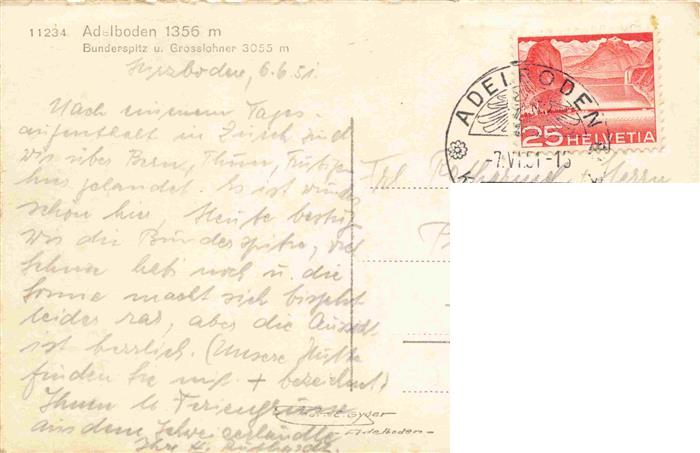 11234 Adelboden 1356 m
Bunderspitz u. Grosslohner 3055 m
6.6.51.
Nach einem Tages-
aufenthalt in Zürich sind
wir über Bern, Thun, Frutigen
hier gelandet. Es ist wunder
schön hier, Heute bestieg
wir die Bunderspitze, viel
Schnee hat noch u. die
Sonne macht sich bis jetzt
leider rar, aber die Aussicht
ist herrlich. (Unsere Hütte
finden Sie mit + bezeichnet)
Ihnen lb. Feriengrüsse
aus dem Schweizerländle
Ihre
ADELBODEN
-7.VI.51-
25 HELVETIA
Frl.
Gyger
Adelboden